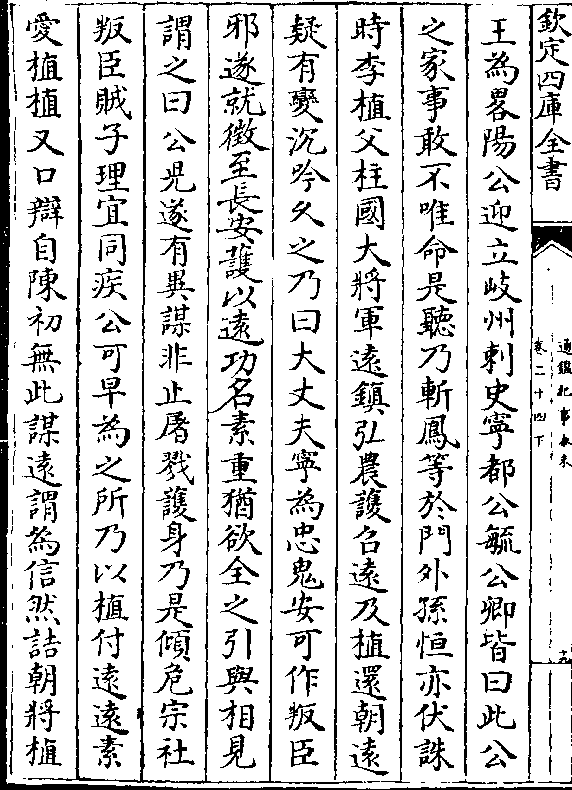 欽定四庫全書
通鑑紀事本末
卷二十四下
王為畧陽公迎立岐州刺史寧都公毓公卿皆曰此公
之家事敢不唯命是聽乃斬鳳等於門外孫恒亦伏誅
時李植父柱國大將軍遠鎮弘農護召遠及植還朝遠
疑有變沉吟乆之乃曰大丈夫寧為忠鬼安可作叛臣
邪遂就徵至長安護以遠功名素重猶欲全之引與相見
謂之曰公兒遂有異謀非止屠戮護身乃是傾危宗社
叛臣賊子理宜同疾公可早為之所乃以植付遠遠素
愛植植又口辯自陳初無此謀遠謂為信然詰朝將植